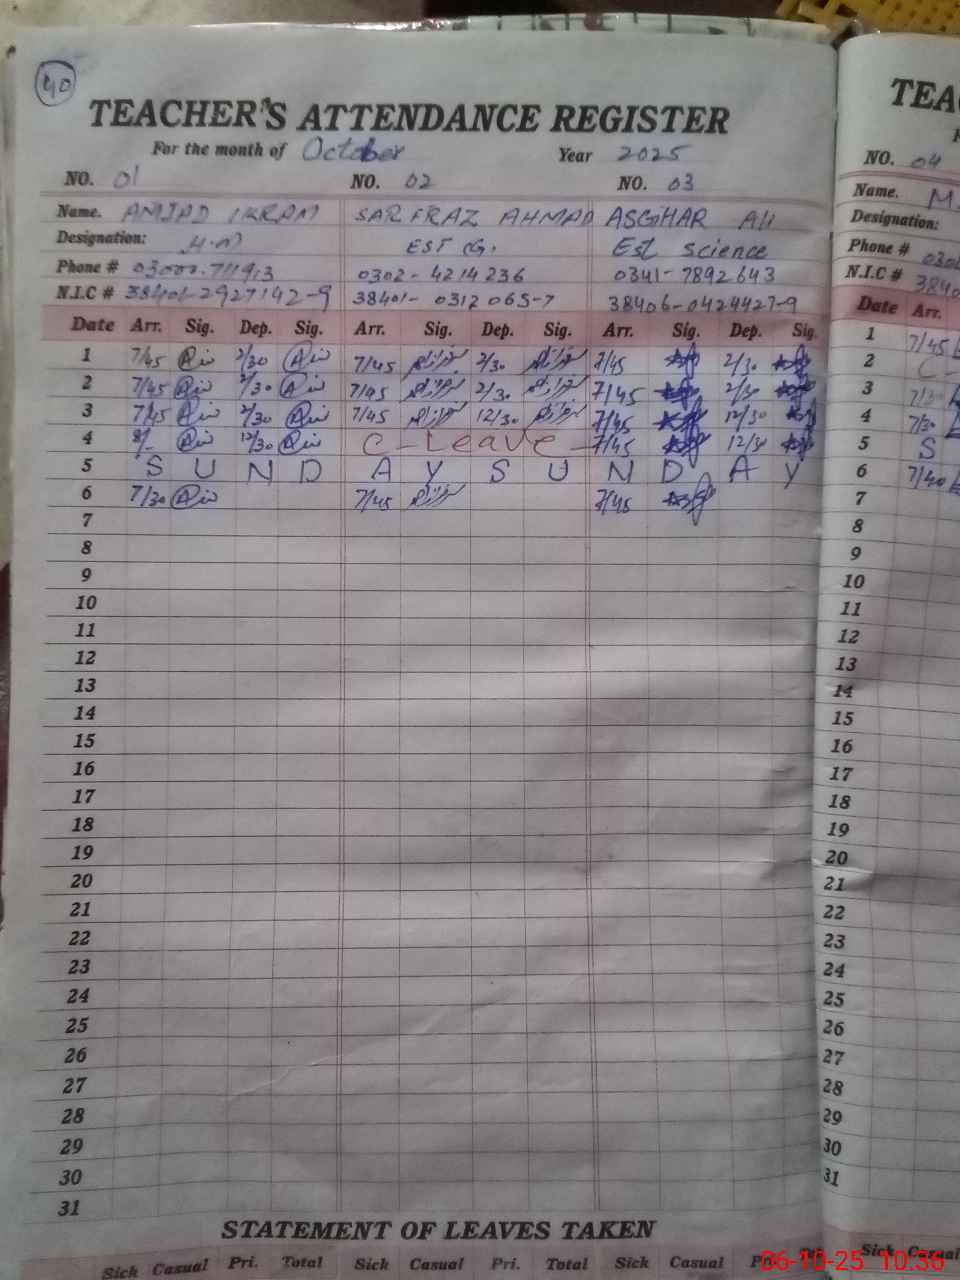 40
TEACHER'S ATTENDANCE REGISTER
For the month of October Year 2025
NO. 01 NO. 02 NO. 03
Name. AMJAD IKRAM SARFRAZ AHMAD ASGHAR Ali
Designation: H.M EST G. Est science
Phone # 0302-4214236 0341-7892643
N.I.C # 38401-2927142-9 38401-0312065-7 38406-0424427-9
Date Arr. Sig. Dep. Sig. Arr. Sig. Dep. Sig. Arr. Sig. Dep. Sig.
1 7/45 2/30 7/45 2/30 7/45 2/30
2 7/45 2/30 7/45 2/30 7/45 2/30
3 7/45 2/30 7/45 12/30 7/45 12/30
4 8/- 12/30 C-Leave 7/45 12/30
5 S U N D A Y S U N D A Y
6 7/30 7/45 7/45
7
8
9
10
11
12
13
14
15
16
17
18
19
20
21
22
23
24
25
26
27
28
29
30
31
STATEMENT OF LEAVES TAKEN
Sick Casual Pri. Total Sick Casual Pri. Total Sick Casual
TEA
NO. 04
Name. M
Designation:
Phone #
N.I.C #
Date Arr.
1 7/45
2 C-
3 7/30
4 7/30
5 S
6 7/40
7
8
9
10
11
12
13
14
15
16
17
18
19
20
21
22
23
24
25
26
27
28
29
30
31
Sick Casual
06-10-25 10:36